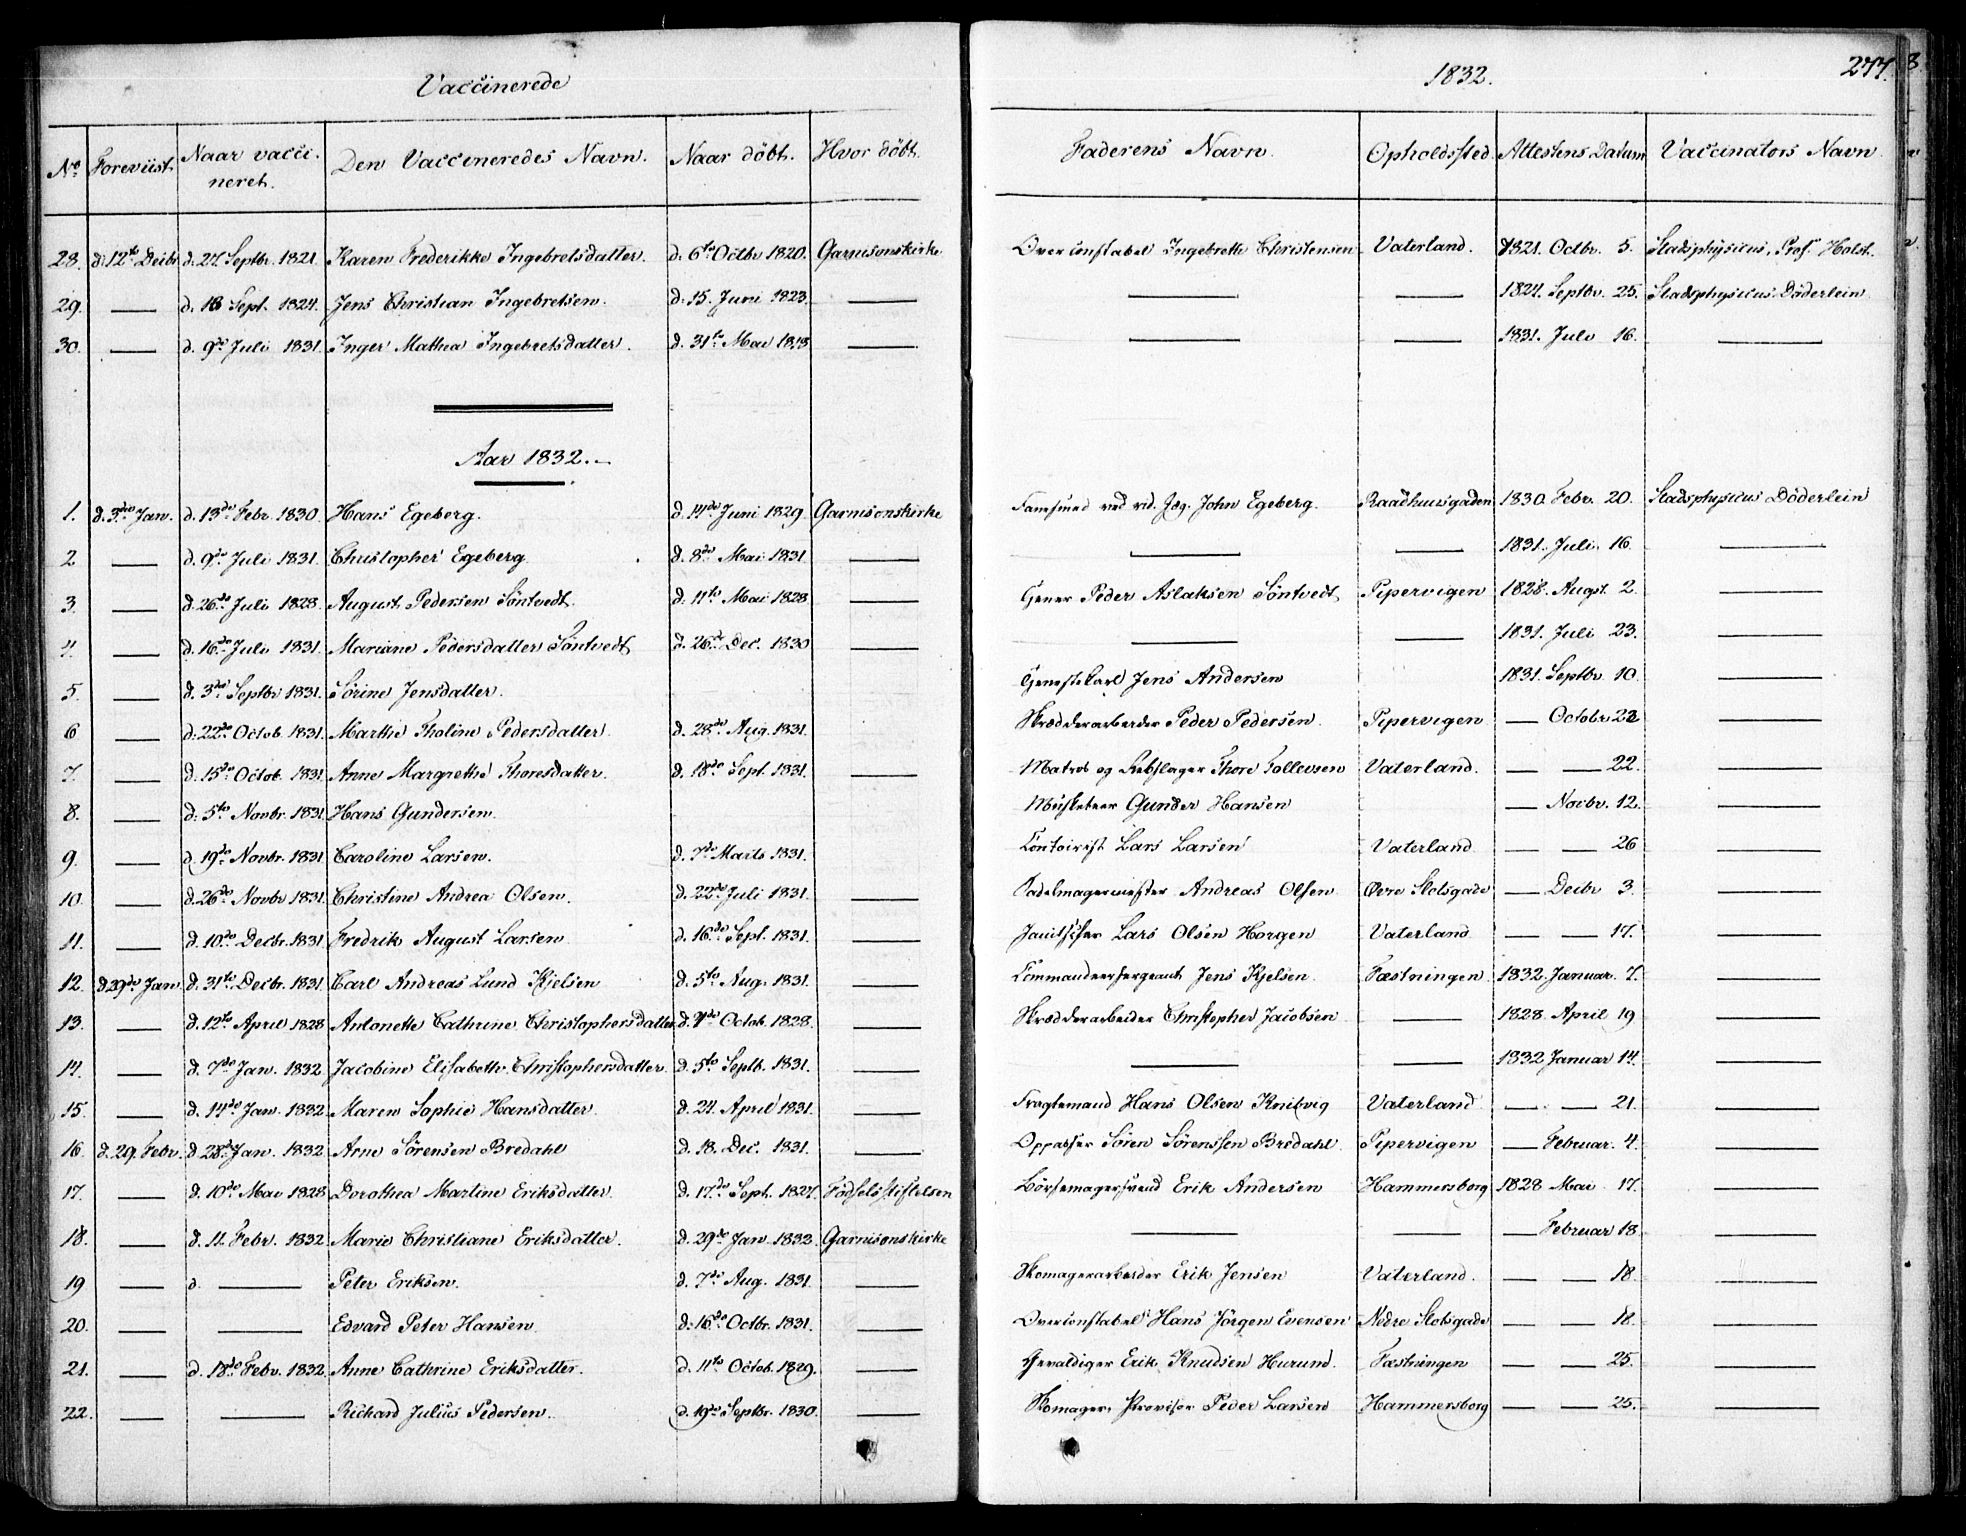 Vaccinerede
1832.
277.
No Foreviist Naar vacci-neret. Den Vaccineredes Navn. Naar döbt. Hvor döbt. Faderens Navn. Opholdssted Attestens Datum Vaccinators Navn
28. d. 12te Decbr d. 27. Septbr. 1821 Karen Frederikke Ingebretsdatter. d. 6te Octbr 1820. Garnisonskirke Overconstabel Ingebreth Christensen Vaterland. 1821. Octbr. 5. Stadsphysicus, Prof. Holst.
29. — d. 18 Sept. 1824. Jens Christian Ingebretsen. d. 15. Juni 1823. — — — 1824. Septbr. 25. Stadsphysicus Döderlein
30. — d. 9de Juli 1831. Inger Mathea Ingebretsdatter. d. 31te Mai — — — 1831. Juli 16. —
Aar 1832.
1. d. 3die Jan. d. 13de Febr. 1830. Hans Egeberg. d. 14de Juni 1829. Garnisonskirke John Egeberg. Raadhuusgaden 1830. Febr. 20. Stadsphysicus Döderlein
2 — d. 9de Juli 1831. Christopher Egeberg d. 8de Mai 1831 — — — 1831. Juli 16. —
3. — d. 26de Juli 1828. August Pedersen Söntvedt. d. 11te Mai 1828 — Peder Aslaksen Söntvedt Pipervigen 1828. Augst. 2. —
4. — d. 16de Juli 1831. Mariane Pedersdatter Söntvedt d. 26de Dec. 1830 — — — 1831. Juli 23. —
5. — d. 3die Septbr 1831. Sörine Jensdatter. Jens Andersen 1831. Septbr. 10. —
6 — d. 22de Octob. 1831. Marthe Tholine Pedersdatter. d. 28de Aug. 1831. — Skrædderarbeider Peder Pedersen. Pipervigen — Octobr 22 —
7. — d. 15de Octob. 1831. Anne Margrethe Thoresdatter. d. 18de Sept. 1831. — Matros og Rebslager Thore Tollevsen Vaterland. — — 22. —
8. — d. 5te Novbr. 1831. Hans Gundersen. Musketeer Gunder Hansen — Novbr. 12. —
9. — d. 19de Novbr. 1831 Caroline Larsen. d. 7de Marts 1831. — Contoirist Lars Larsen Vaterland — — 26 —
10. — d. 26de Novbr 1831. Christine Andrea Olsen. d. 22de Juli 1831. — Sadelmagermester Andreas Olsen Övre Slotsgade — Decbr 3. —
11. — d. 10de Decbr. 1831. Fredrik August Larsen d. 16de Sept. 1831. — Lars Olsen Horgen Vaterland — — 17. —
12. d. 29de Jan. d. 31te Decbr. 1831. Carl Andreas Lund Kjelsen d. 5te Aug. 1831. — Commandeersergeant Jens Kjelsen. Fæstningen 1832. Januar. 7. —
13. — d. 12te April 1828 Antonette Cathrine Christophersdatter d. Octob. 1828. — Skrædderarbeider Christopher Jacobsen — 1828. April 19 —
14. — d. 7de Jan. 1832 Jacobine Elisabeth Christophersdatter. d. 5te Septb. 1831. — — — 1832 Januar 14. —
15. — d. 14de Jan. 1832. Maren Sophie Hansdatter. d. 24. April 1831. — Fragtemand Hans Olsen Vaterland — — 21. —
16. d. 29. Febr. d. 28de Jan. 1832. Arne Sörensen Bredahl d. 18. Dec. 1831. — Oppasser Sören Sörenssen Bredahl. Pipervigen — Februar. 4. —
17. — d. 10de Mai 1828 Dorothea Martine Eriksdatter. d. 17de Sept. 1827. Födselsstiftelsen Börstemagersvend Erik Andersen Hammersborg 1828 Mai 17. —
18. — d. 11. Febr. 1832. Marie Christiane Eriksdatter. d. 29de Jan. 1832. Garnisonskirke — — — Februar 18. —
19 — d. — Peter Eriksen. d. 7de Aug. 1831. — Skomagerarbeider Erik Jensen Vaterland. — — 18. —
20. — — Edvard Peter Hansen d. 16de Octbr. 1831. — Overconstabel Hans Jörgen Evensen Nedre Slotsgade — — 18. —
21. — d. 18de Febr. 1832. Anne Cathrine Eriksdatter. d. 11te Octob. 1829. — Gevaldiger Erik Knudsen Hurund. Fæstningen — — 25. —
22. — — Richard Julius Pedersen. d. 19de Septbr. 1830. — Skomager, Provisor Peder Larsen Hammersborg — — 25. —